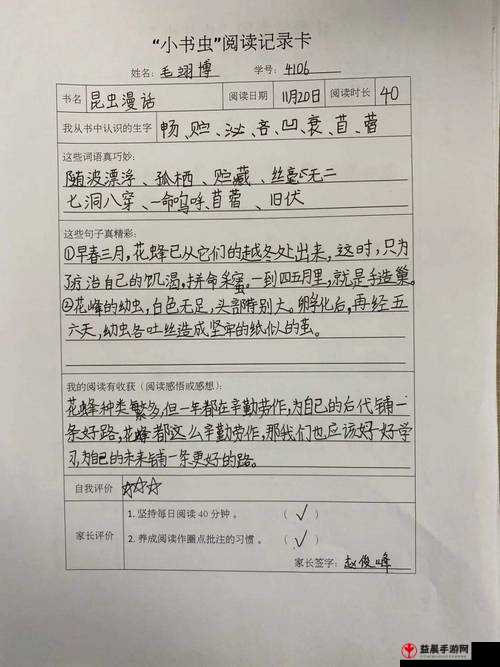 “小书虫”阅读记录卡
姓名：毛翊博 学号：4106
书名 昆虫漫话 阅读日期 11月20日 阅读时长 40
我从书中认识的生字 畅、贮、泌、吝、凹、衰、苜、蓿
这些词语真巧妙：
随波漂浮、孤栖、贮藏、丝毫无二
七洞八穿、一命呜呼、苜蓿、旧伏
这些句子真精彩：
①早春三月，花蜂已从它们的越冬处出来，这时，只为
了疗治自己的饥渴，拼命采蜜。一到四五月里，就是手造巢。
②花蜂的幼虫，白色无足，头部特别大。孵化后，再经五
六天，幼虫各吐丝造成坚牢的纸似的茧。
我的阅读有收获（阅读感悟或感想）：
花蜂种类繁多，但一年都在辛勤劳作，为自己的后代铺一
条好路，花蜂都这么辛勤劳作，那我们也应该好好学
习，为自己的未来铺一条更好的路。
自我评价 ☆☆☆
家长评价 1. 坚持每日阅读 40 分钟。 （ √ ）
2. 养成阅读作圈点批注的习惯。 （ √ ）
家长签字：赵俊峰
益晨手游网